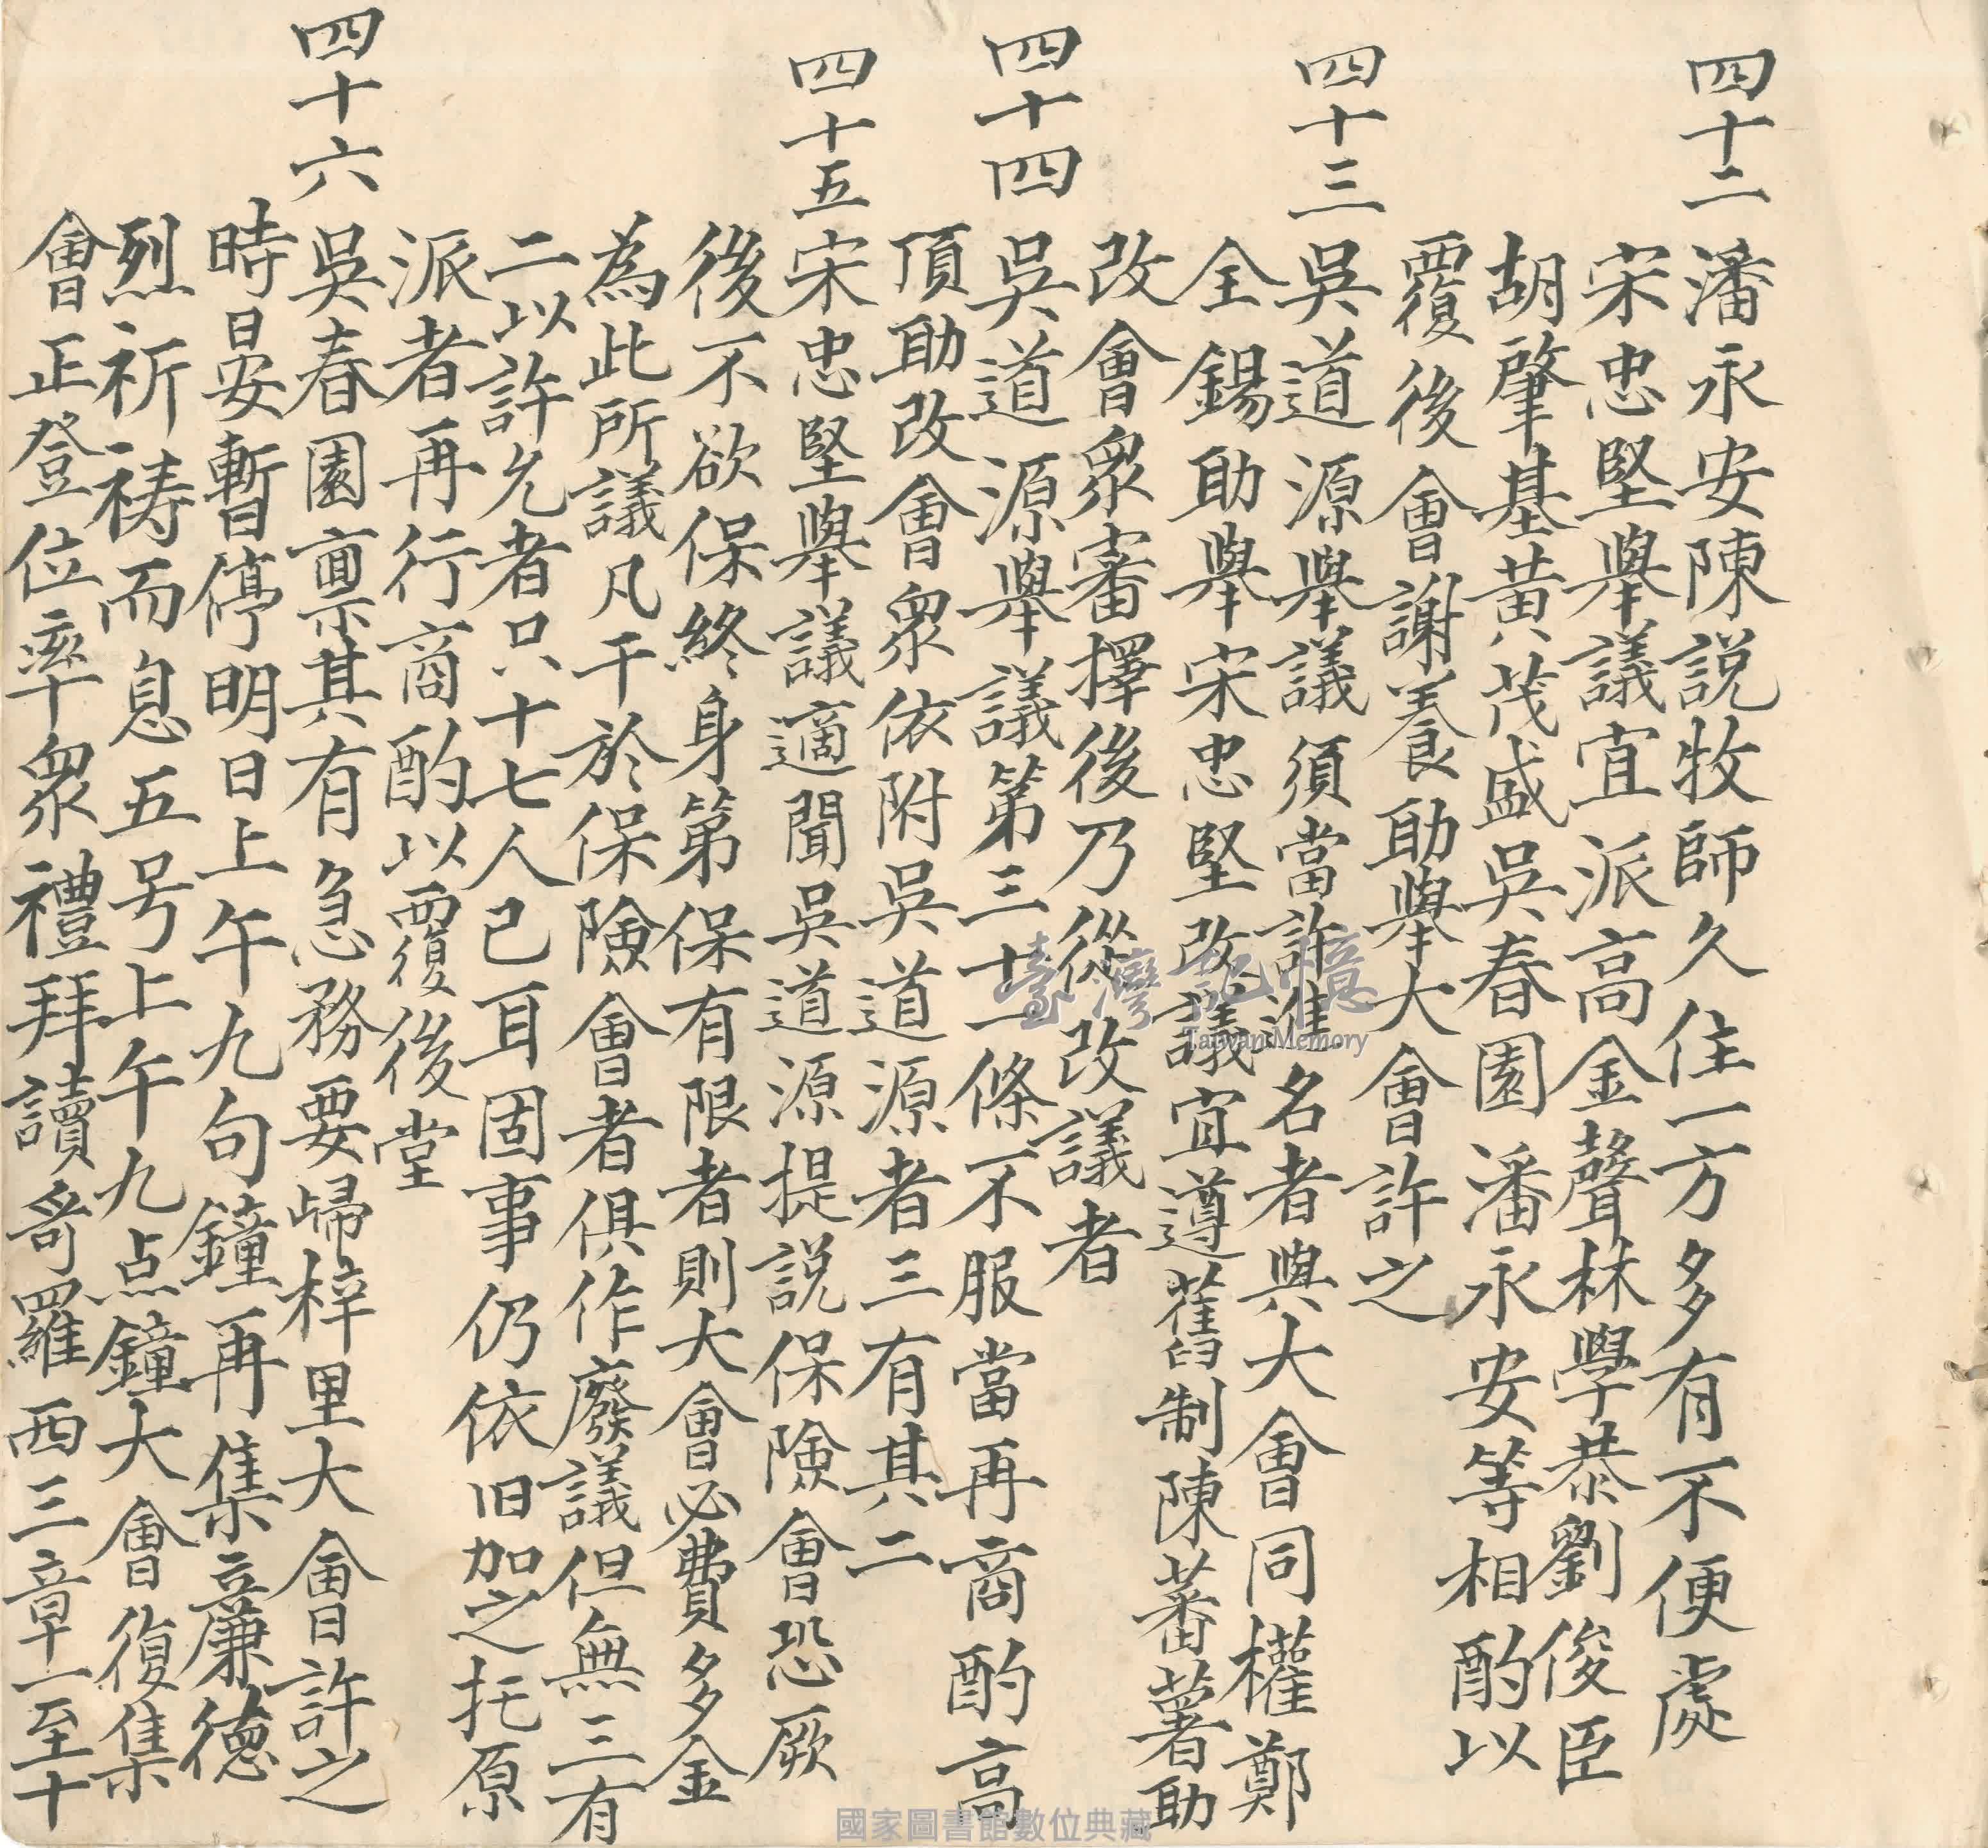 四十二 潘永安陳説牧師久住一方多有不便處
宋忠堅舉議宜派高金聲林學恭劉俊臣
胡肇基黃茂盛吳春園潘永安等相酌以
覆後會謝養助舉大會許之
四十三 吳道源舉議須當許進名者與大會同權鄭
全錫助舉宋忠堅改議宜遵舊制陳蕃薯助
改會衆審擇後乃從改議者
四十四 吳道源舉議第三十一條不服當再商酌高
頂助改會衆依附吳道源者三有其二
四十五 宋忠堅舉議適聞吳道源提説保險會恐厥
後不欲保終身第保有限者則大會必費多金
為此所議凡干於保險會者俱作廢議但無三有
二以許允者只十七人已耳固事仍依旧加之托原
派者再行商酌以覆後堂
四十六 吳春園稟其有急務要歸梓里大會許之
時日晏暫停明日上午九句鐘再集廉德
烈祈祷而息五号上午九点鐘大會復集
會正登位率衆禮拜讀哥羅西三章一至十
臺灣記憶
Taiwan Memory
國家圖書館數位典藏